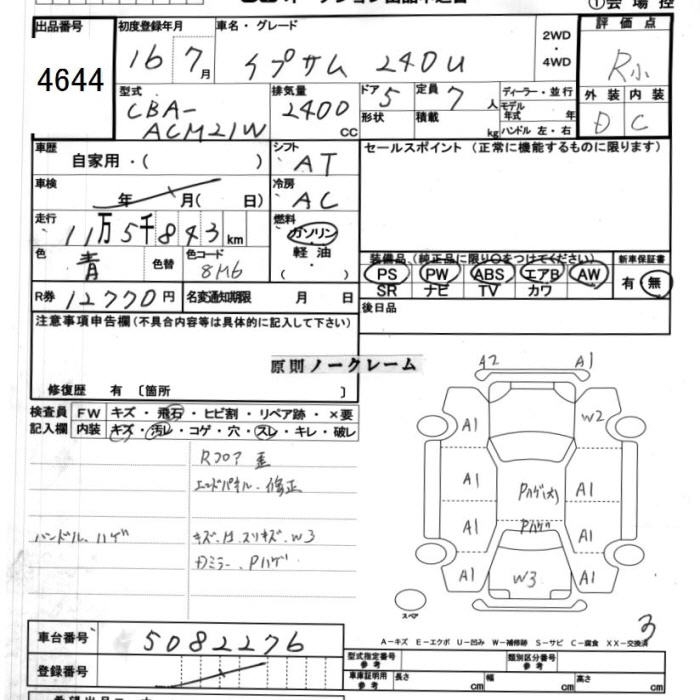 ①会場控
出品番号
4644
初度登録年月
16 7月
車名・グレード
イプサム 240u
2WD
・
4WD
評価点
R小
外装 内装
D C
型式
CBA-
ACM21W
排気量
2400
cc
ドア 5
形状
定員 7 人
積載 kg
ディーラー・並行
モデル
年式 年
ハンドル 左・右
車歴
自家用・( )
シフト
AT
セールスポイント(正常に機能するものに限ります)
車検
年 月( 日)
冷房
AC
走行
11万5千843km
燃料
ガソリン
軽油
・( )
色
青
色替
色コード
8M6
装備品(純正品に限り○をつけてください)
PS PW ABS エアB AW
SR ナビ TV カワ
新車保証書
有・無
R券 12770円
名変通知期限 月 日
後日品
注意事項申告欄(不具合内容等は具体的に記入して下さい)
原則ノークレーム
修復歴 有〔箇所 〕
検査員
記入欄
FW キズ・飛石・ヒビ割・リペア跡・×要
内装 キズ・汚レ・コゲ・穴・スレ・キレ・破レ
Rフロア 歪
エンドパネル・修正
ハンドル、ハゲ
キズ、凹、スリキズ、W3
Dミラー、Pハゲ
A2 A1
W2
A1
A1
Pハゲ(大)
A1
A1
Pハゲ
A1
A1
W3
A1
スペア
3
A-キズ E-エクボ U-凹み W-補修跡 S-サビ C-腐食 XX-交換済
車台番号
5082276
登録番号
型式指定番号
参考
類別区分番号
参考
車庫証明用
参考
長さ cm
幅 cm
高さ cm